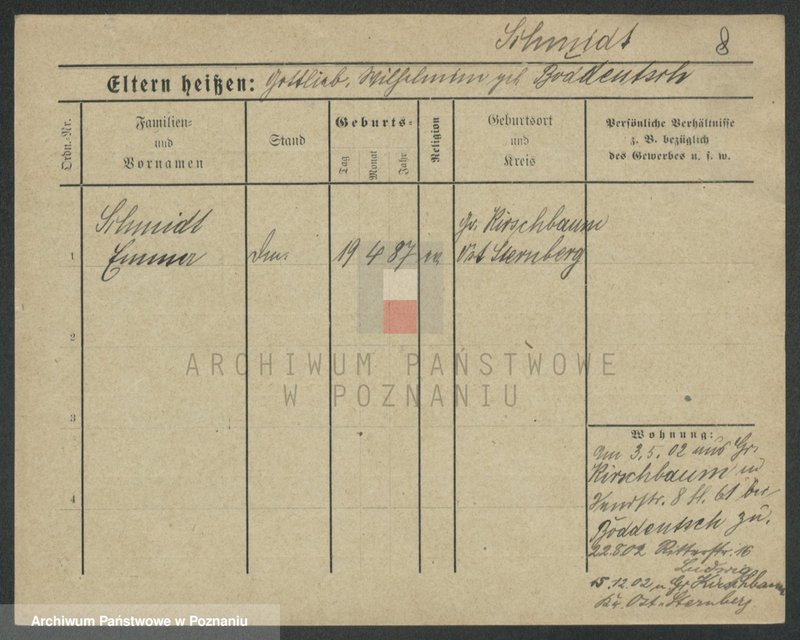 Schmidt 8
Eltern heißen: Gottlieb, Wilhelmine geb Böddeutsch
Ordn.-Nr.
Familien- und Vornamen
Stand
Geburts-
Tag Monat Jahr
Religion
Geburtsort und Kreis
Persönliche Verhältnisse
z. B. bezüglich
des Gewerbes u. s. w.
Schmidt Gr. Kirschbaum
1 Emma 19 4 87 ev Ost Sternberg
2
ARCHIWUM PAŃSTWOWE
W POZNANIU
3
Wohnung:
Am 3.5.02 aus Gr.
Kirschbaum in
8 bei
4
Böddeutsch zu.
22802 Ritterstr. 16
Ludwig
15.12.02 n Gr Kirschbaum
Kr. Ost-Sternberg
Archiwum Państwowe w Poznaniu